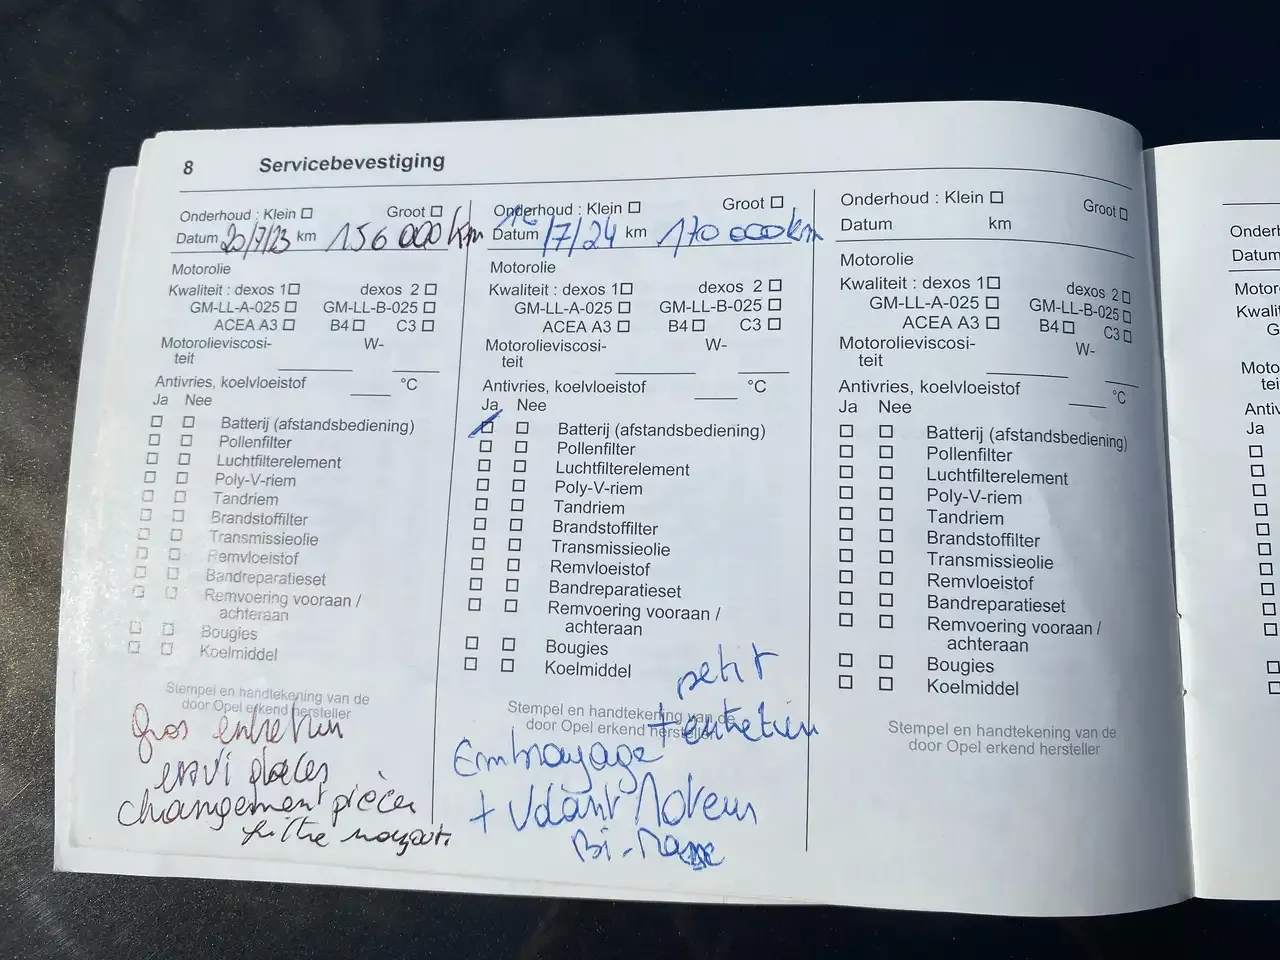 8 Servicebevestiging
Onderhoud : Klein ☐ Groot ☐
Datum 20/7/23 km 156 000 km
Motorolie
Kwaliteit : dexos 1 ☐ dexos 2 ☐
GM-LL-A-025 ☐ GM-LL-B-025 ☐
ACEA A3 ☐ B4 ☐ C3 ☐
Motorolieviscosi-
teit W-
Antivries, koelvloeistof °C
Ja Nee
☐ ☐ Batterij (afstandsbediening)
☐ ☐ Pollenfilter
☐ ☐ Luchtfilterelement
☐ ☐ Poly-V-riem
☐ ☐ Tandriem
☐ ☐ Brandstoffilter
☐ ☐ Transmissieolie
☐ ☐ Remvloeistof
☐ ☐ Bandreparatieset
☐ ☐ Remvoering vooraan /
achteraan
☐ ☐ Bougies
☐ ☐ Koelmiddel
Stempel en handtekening van de
door Opel erkend hersteller
Gros entretien
changement pièces
filtre
Onderhoud : Klein ☐ Groot ☐
Datum /7/24 km 170 000 km
Motorolie
Kwaliteit : dexos 1 ☐ dexos 2 ☐
GM-LL-A-025 ☐ GM-LL-B-025 ☐
ACEA A3 ☐ B4 ☐ C3 ☐
Motorolieviscosi-
teit W-
Antivries, koelvloeistof °C
Ja Nee
☐ ☐ Batterij (afstandsbediening)
☐ ☐ Pollenfilter
☐ ☐ Luchtfilterelement
☐ ☐ Poly-V-riem
☐ ☐ Tandriem
☐ ☐ Brandstoffilter
☐ ☐ Transmissieolie
☐ ☐ Remvloeistof
☐ ☐ Bandreparatieset
☐ ☐ Remvoering vooraan /
achteraan
☐ ☐ Bougies
☐ ☐ Koelmiddel
Stempel en handtekening van de
door Opel erkend hersteller
petit
+ entretien
Embrayage
+ Volant Moteur
Bi-
Onderhoud : Klein ☐ Groot ☐
Datum km
Motorolie
Kwaliteit : dexos 1 ☐ dexos 2 ☐
GM-LL-A-025 ☐ GM-LL-B-025 ☐
ACEA A3 ☐ B4 ☐ C3 ☐
Motorolieviscosi-
teit W-
Antivries, koelvloeistof °C
Ja Nee
☐ ☐ Batterij (afstandsbediening)
☐ ☐ Pollenfilter
☐ ☐ Luchtfilterelement
☐ ☐ Poly-V-riem
☐ ☐ Tandriem
☐ ☐ Brandstoffilter
☐ ☐ Transmissieolie
☐ ☐ Remvloeistof
☐ ☐ Bandreparatieset
☐ ☐ Remvoering vooraan /
achteraan
☐ ☐ Bougies
☐ ☐ Koelmiddel
Stempel en handtekening van de
door Opel erkend hersteller